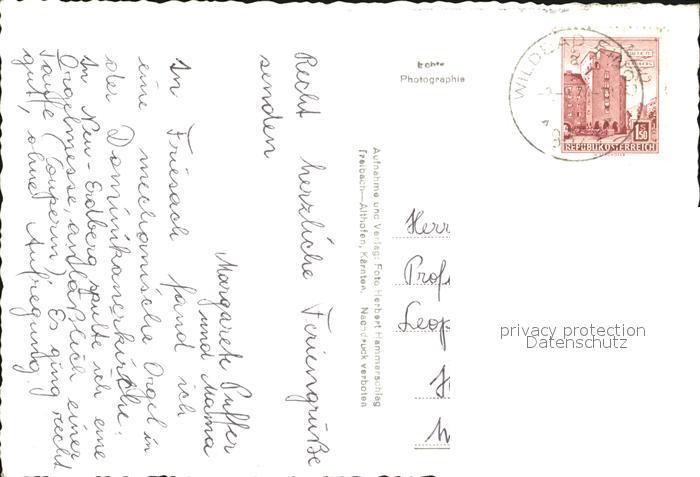 Recht herzliche Feriengrüße
senden
Margarete Puffer
und Mama
In Friesach fand ich
eine mechanische Orgel in
der Dominikanerkirche.
In Neu-Erdberg spielte ich eine
Orgelmesse, anläßlich einer
Taufe (Couperin) Es ging recht
gut, ohne Aufregung!
Echte
Photographie
Aufnahme und Verlag: Foto Herbert Hammerschlag
Treibach—Althofen, Kärnten. Nachdruck verboten
WILDBAD EINÖD
1.50
REPUBLIK ÖSTERREICH
Herr
Prof
Leop
privacy protection
Datenschutz